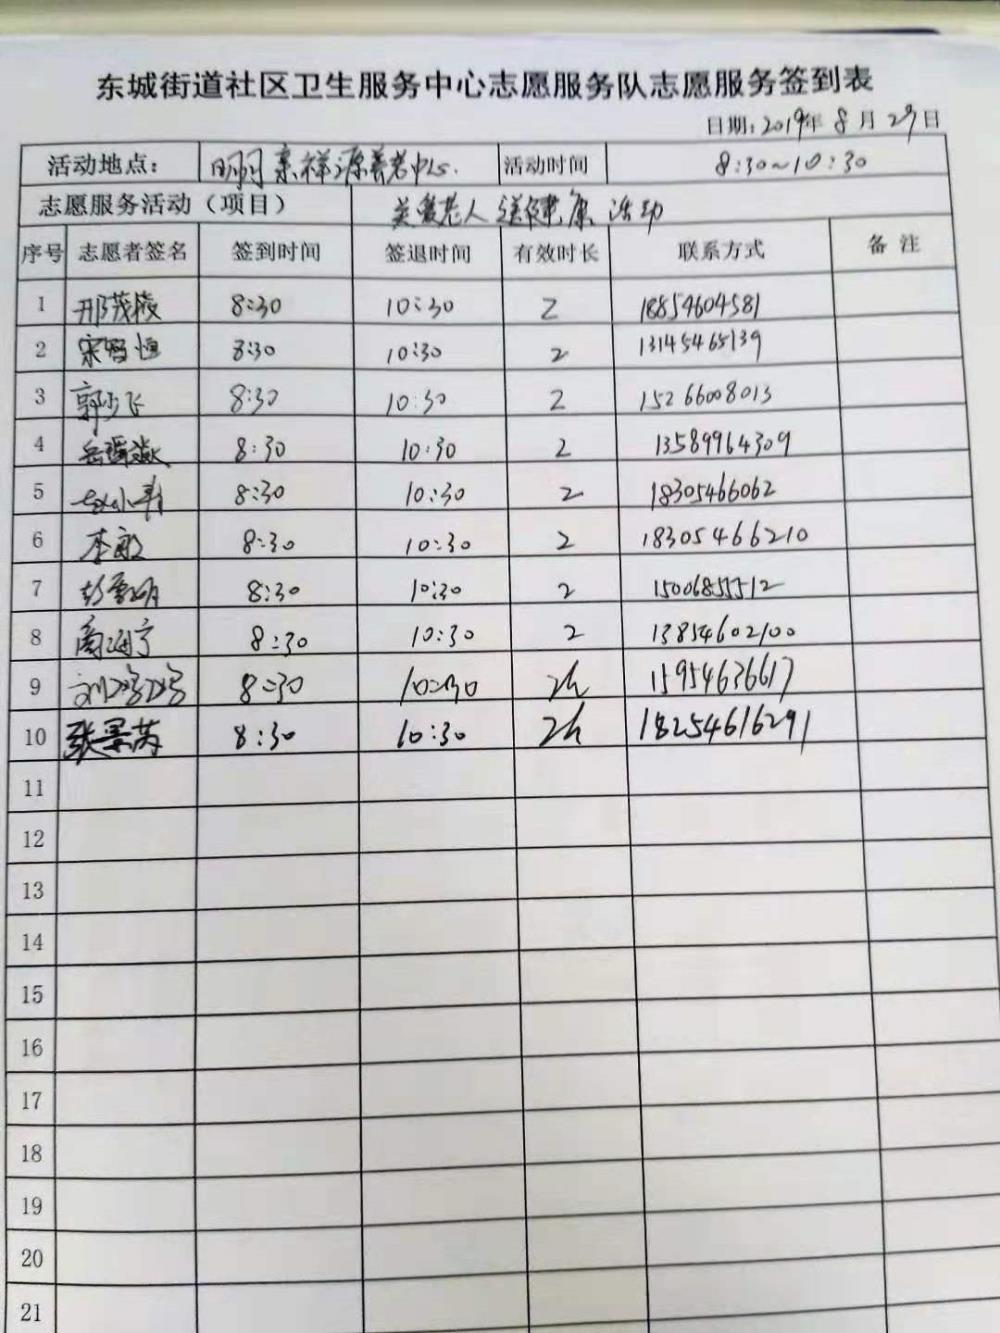 东城街道社区卫生服务中心志愿服务队志愿服务签到表
日期:2019年 8 月 29日
活动地点: 明月 祥源养老中心. 活动时间 8:30~10:30
志愿服务活动(项目) 关爱老人 送健康 活动
序号 志愿者签名 签到时间 签退时间 有效时长 联系方式 备 注
1 邢茂陵 8:30 10:30 2 18854604581
2 8:30 10:30 2 13145465139
3 郭少飞 8:30 10:30 2 15266008013
4 8:30 10:30 2 13589964309
5 8:30 10:30 2 18305466062
6 李敏 8:30 10:30 2 18305466210
7 彭雪明 8:30 10:30 2 15006855512
8 南海宁 8:30 10:30 2 13854602100
9 8:30 10:30 2h 15954636617
10 张景芮 8:30 10:30 2h 18254616291
11
12
13
14
15
16
17
18
19
20
21